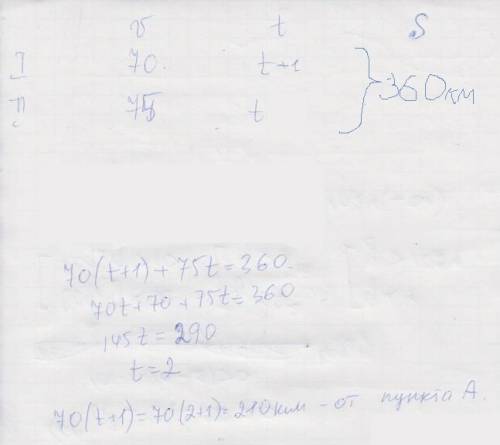 v t S
I 70. t+1
II 75 t } 360км
70(t+1)+75t=360.
70t+70+75t=360
145t=290
t=2
70(t+1)=70(2+1)=210км - от пункта А.